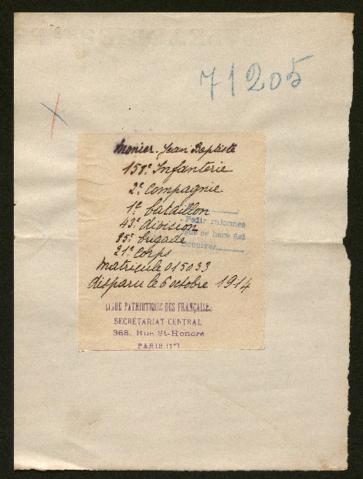 71205
x
Monier. Jean Baptiste
158e Infanterie
2e compagnie
1e bataillon
43e division
85e brigade
21e corps
matricule 015033
disparu le 6 octobre 1914
LIGUE PATRIOTIQUE DES FRANÇAISES
SECRÉTARIAT CENTRAL
368, Rue St-Honoré
PARIS (1er)